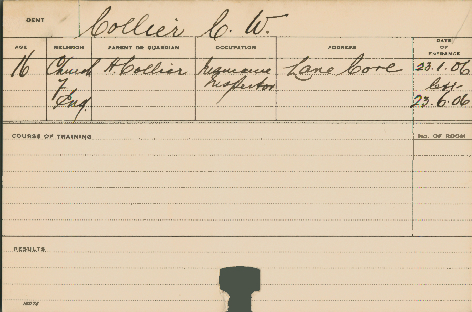 DENT Collier C. W.
AGE RELIGION PARENT OR GUARDIAN OCCUPATION ADDRESS DATE OF ENTRANCE
16 Church H. Collier Insurance Lane Cove 23.1.06
of Inspector Left
Eng. 23.6.06
COURSE OF TRAINING NO. OF ROOM
RESULTS